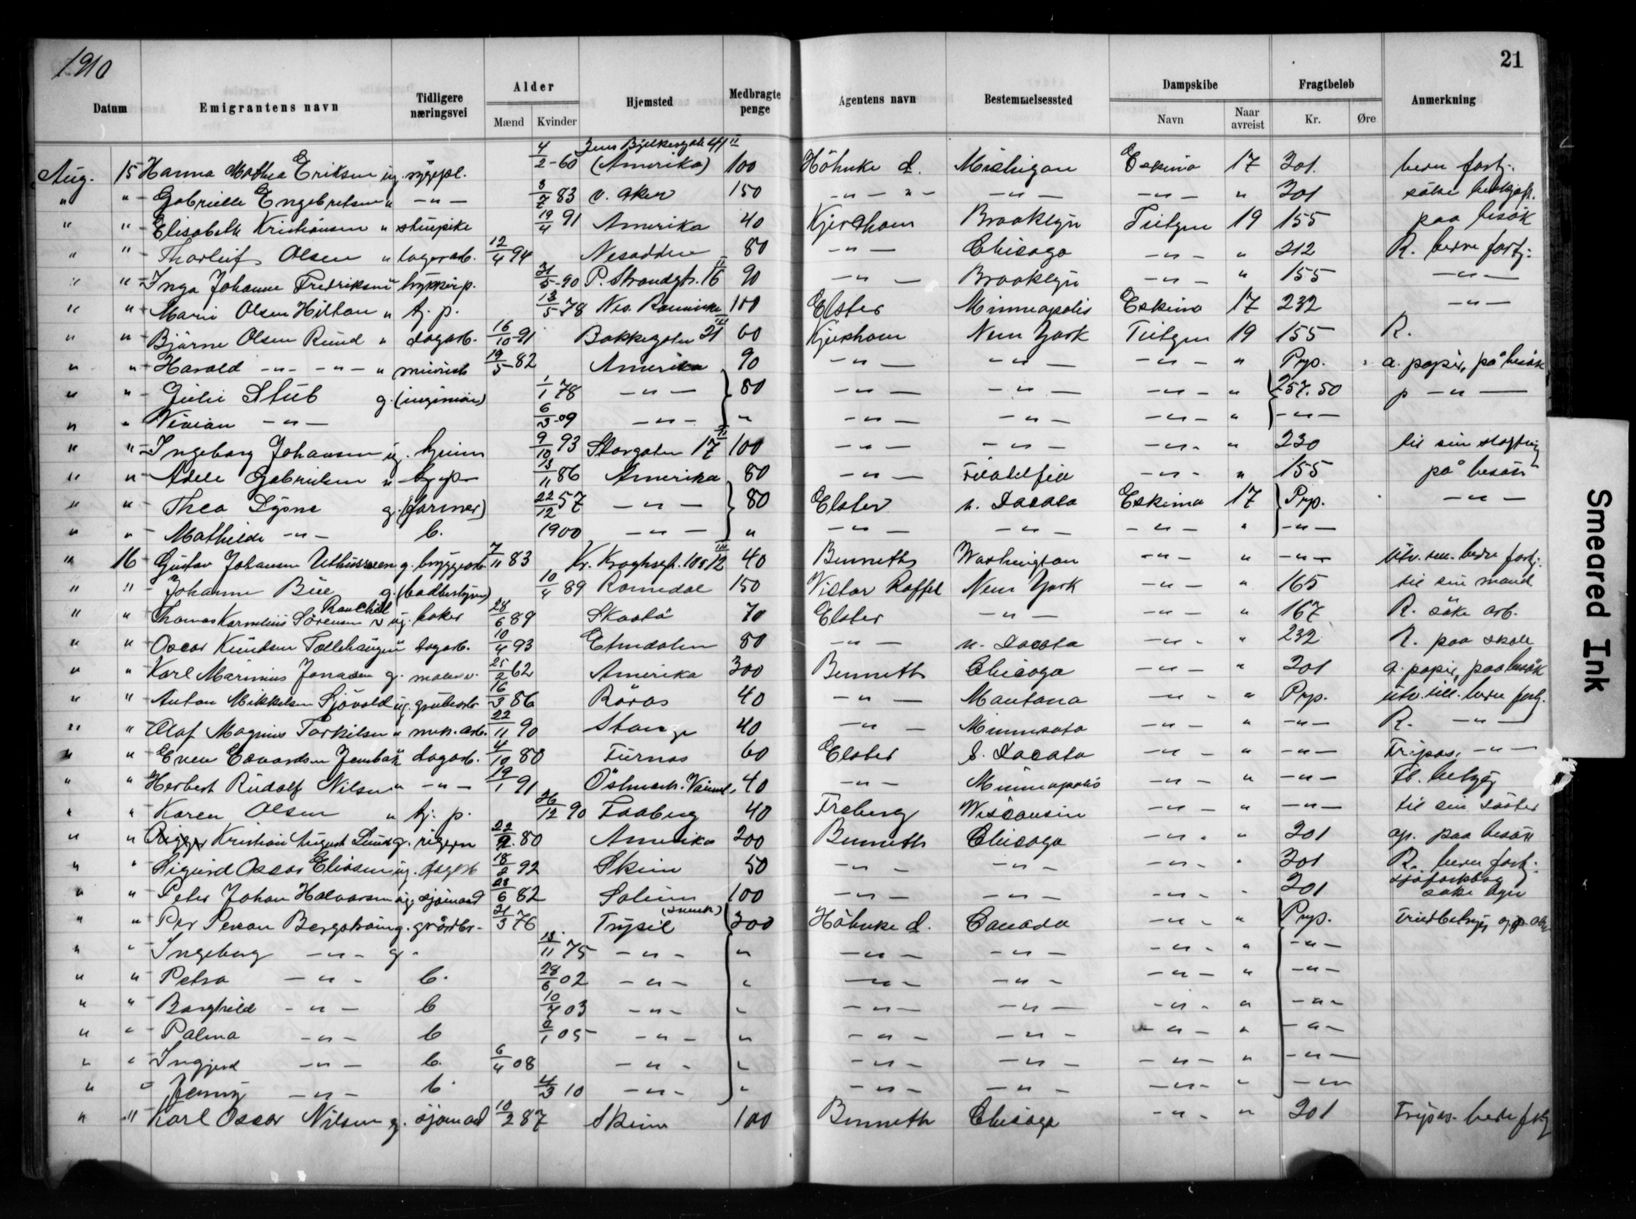 1910
21
Datum Emigrantens navn Tidligere næringsvei Alder Mænd Kvinder Hjemsted Medbragte penge Agentens navn Bestemmelsessted Dampskibe Navn Naar avreist Fragtbeløb Kr. Øre Anmerkning
Aug. 15 Hanna Mathea Eriksen ug. sypepl. 4/2-60 (Amerika) 100 Höhnke d. Michigan Eskimo 17 301 bedre fortj.
" " Gabrielle Engebretsen " -"- 83 v. Aker 150 -"-"- -"- -"- " 301 söke
" " Elisabeth Kristiansen " stuepike 19/4 91 Amerika 40 Kjerxhom Brooklyn Tietgen 19 155 paa besök
" " Thorleif Olsen " lagerarb. 12/4 94 Nesodden 80 -"- Chicago -"- " 212 R. bedre fortj.
" " Inga Johanne Fredriksen " 31/5-90 P. Strandgt. 16 90 -"- Brooklyn -"- " 155 -"-
" " Marie Olsen Hilton " tj. p. 13/5 78 100 Elster Minneapolis Eskimo 17 232 -"-
" " Bjarne Olsen Rund " dagarb. 16/10-91 Bakkegaten 21 60 Kjerxhom New York Tietgen 19 155 R.
" " Harald -"- -"- " 19/5 82 Amerika 90 -"- -"- -"- " Prp. a. papir, på besök
" " Julie Stub g. (ingeniör) 1/1 78 -"- 80 -"- -"- -"- " 257.50 p -"-
" " Vivian -"- 6/3-09 -"- " -"- -"- -"- " -"-
" " Ingeborg Johansen ug. 9/10 93 Storgaten 17 100 -"- -"- -"- " 230 til sin slegtning
" " Adele Gabrielsen " tj. p. 13/11 86 Amerika 80 -"- Filadelfia -"- " 155 på besök
" " Thea g. (farmer) 22/12 57 -"- 80 Elster n. Dacota Eskimo 17 Prp. -"-
" " Mathilde -"- b. 1900 -"- " -"- -"- -"- " -"-
" 16 Gustav Johansen g. bryggearb. 7/11 83 Kr. Kroghsgt. 40 Bennetts Washington -"- " -"- bedre fortj.
" " Johanne Bue g. 10/4 89 Romsdal 150 Victor Roffel New York -"- " 165 til sin mand
" " Thomas Kornelius Sörensen ug. baker 28/6 89 Skaatö 70 Elster -"- -"- " 167 R. söke arb.
" " Oscar Knudsen Tollehaugen " dagarb. 10/4 93 Etnedalen 80 -"- n. Dacota -"- " 232 R. paa skole
" " Karl Marinius Jonassen g. 25/2 62 Amerika 300 Bennetts Chicago -"- " 201 a. papir, paa besök
" " Anton Mikkelsen Sjövold ug. grubearb. 16/3 86 Röros 40 -"- Montana -"- " Prp. utv. till. bedre fortj.
" " Olaf Magnus Torkilsen " mek. arb. 22/11 90 Stange 40 -"- Minnesota -"- " -"- R. -"-
" " Even Edvardsen " dagarb. 4/10 80 Furnes 60 Elster S. Dacota -"- " -"- Tripas. -"-
" " Herbert Rudolf Nilsen " -"- 19/1 91 Östmark. 40 -"- Minneapolis -"- " -"-
" " Karen Olsen " tj. p. 26/12 90 Faaberg 40 Freberg Wisconsin -"- " -"- til sin söster
" " Kristian August g. 22/2 80 Amerika 200 Bennetts Chicago -"- " 201 ap. paa besök
" " Sigurd Oscar Eliasen ug. 18/2 92 Skien 50 -"- -"- -"- " 201 R. bedre fortj.
" " Peter Johan Halvorsen ug. sjömand 23/6 82 Solum 100 -"- -"- -"- " 201 söke
" " Per Person Bergström g. gårdbr. 21/3 76 Trysil (svensk) 300 Höhnke d. Canada -"- " Prp.
" " Ingeborg -"- g. 13/11 75 -"- " -"- -"- -"- " -"-
" " Petra -"- b. 28/6 02 -"- " -"- -"- -"- " -"-
" " Borghild -"- b 10/4 03 -"- " -"- -"- -"- " -"-
" " Palma -"- b 2/1 05 -"- " -"- -"- -"- " -"-
" " Ingjerd -"- b. 6/4 08 -"- " -"- -"- -"- " -"-
" " Jenny -"- b. 4/3 10 -"- " -"- -"- -"- " -"-
" " Karl Oscar Nilsen g. sjömand 10/2 87 Skien 100 Bennetts Chicago -"- " 201 Tripas. bedre fortj
Smeared Ink